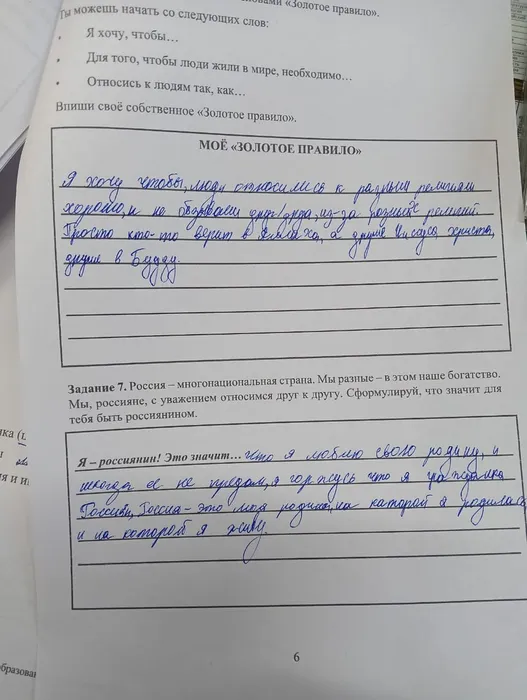 овами «Золотое правило».
Ты можешь начать со следующих слов:
• Я хочу, чтобы…
• Для того, чтобы люди жили в мире, необходимо…
• Относись к людям так, как…
Впиши своё собственное «Золотое правило».
МОЁ «ЗОЛОТОЕ ПРАВИЛО»
Я хочу чтобы, люди относились к разным религиям
хорошо, и не обзывали друг/друга, из-за разных религий.
Просто кто-то верит в Аллаха, а другие Иисуса христа,
другие в Будду.
Задание 7. Россия – многонациональная страна. Мы разные – в этом наше богатство.
Мы, россияне, с уважением относимся друг к другу. Сформулируй, что значит для
тебя быть россиянином.
Я – россиянин! Это значит… что я люблю свою родину, и
никогда её не предам, я горжусь что я гражданка
России, Россия - это моя родина, на которой я родилась
и на которой я живу.
6